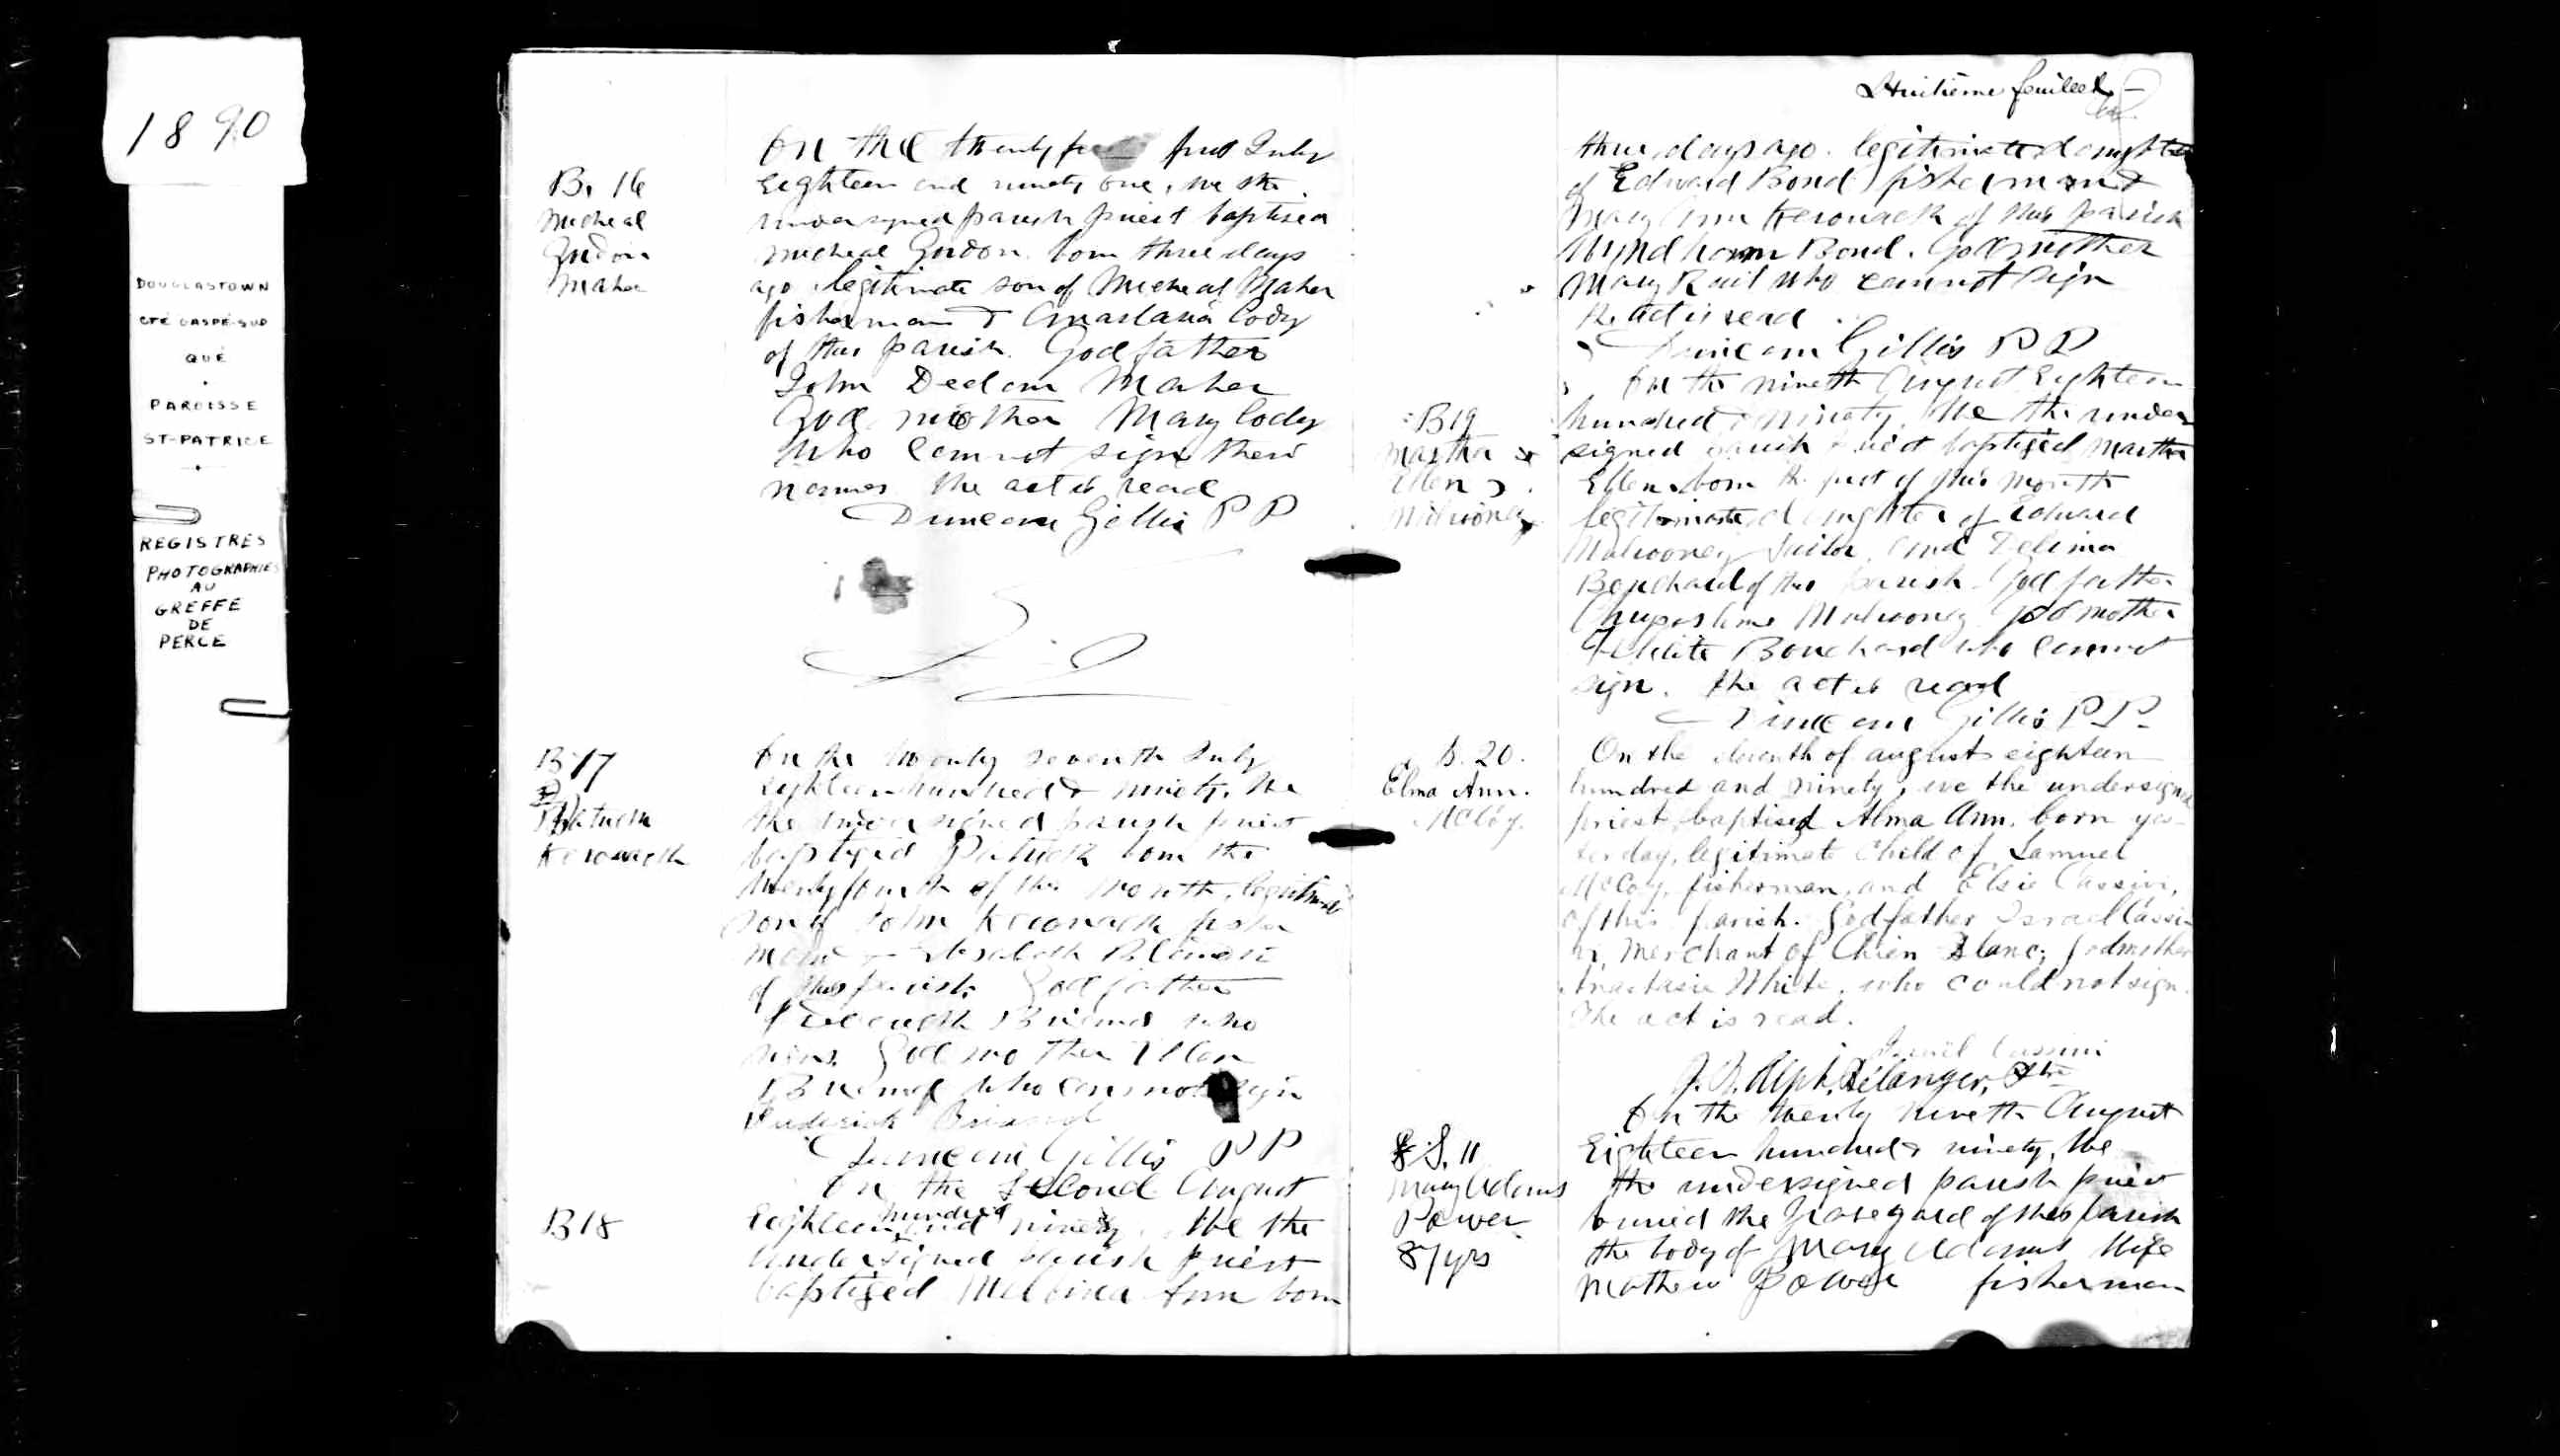 1890
DOUGLASTOWN
CTÉ GASPÉ-SUD
QUÉ
PAROISSE
ST-PATRICE
REGISTRES
PHOTOGRAPHIES
AU
GREFFE
DE
PERCE
B. 16
Micheal
Gordon
Maher
On the twenty first July
Eighteen and ninety one, we the
undersigned parish priest baptised
Micheal Gordon born three days
ago legitimate son of Micheal Maher
fisherman & Anastasia Cody
of this parish. Godfather
John Declan Maher
God mother Mary Cody
who cannot sign their
names the act is read
Duncan Gillis P P
B 17
Patrick
On the twenty seventh July
Eighteen hundred & ninety, We
the undersigned parish priest
baptised Patrick born the
twenty fourth of this month, legitimate
son of John fisher
man &
of this parish God father
who
signs God mother Ellen
who cannot sign
Duncan Gillis P P
B 18
On the second August
Eighteen hundred ninety. We the
undersigned parish priest
baptized Melvina Ann born
Huitième feuillet
three days ago. legitimate daughter
of Edward Bond fisherman &
Mary Ann of this parish
Bond. Godmother
Mary Rail who cannot sign
the act is read
Duncan Gillis P P
B 19
Martha
Ellen
On the nineth August Eighteen
hundred & ninety. We the under
signed parish priest baptized Martha
Ellen born the first of this month
legitimate daughter of Edward
and Delima
Bouchard of this parish. God father
God mother
Bouchard who cannot
sign. the act is read
Duncan Gillis P.P.
B. 20.
Elma Ann.
McCoy.
On the of august eighteen
hundred and ninety, we the undersigned
priest, baptised Alma Ann. born yes-
terday, legitimate child of Samuel
McCoy, fisherman, and Elsie Cassivi,
of this parish. Godfather Israel Cassi-
vi, merchant of Chien Blanc, godmother
Anastasie White, who could not sign.
The act is read.
J. B. Alph. Bélanger, Ptre
S. 11
Mary Adams
Power
87 yrs
On the twenty nineth August
Eighteen hundred & ninety, We
the undersigned parish priest
buried the graveyard of this parish
the body of Mary Adams Wife
Mathew Power fisherman